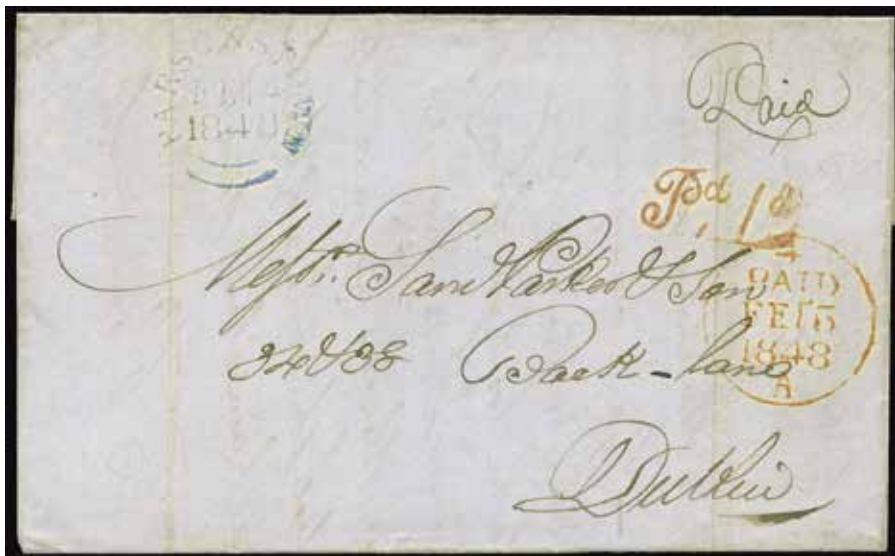 NAAS
FE 14
1848
Paid
Pd 1d
4
PAID
FE 15
1848
A
Messrs. Saml Parker & Son
34 & 38 Back-lane
Dublin